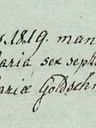 1819. man
Maria sex sept
Mariæ Goldschm